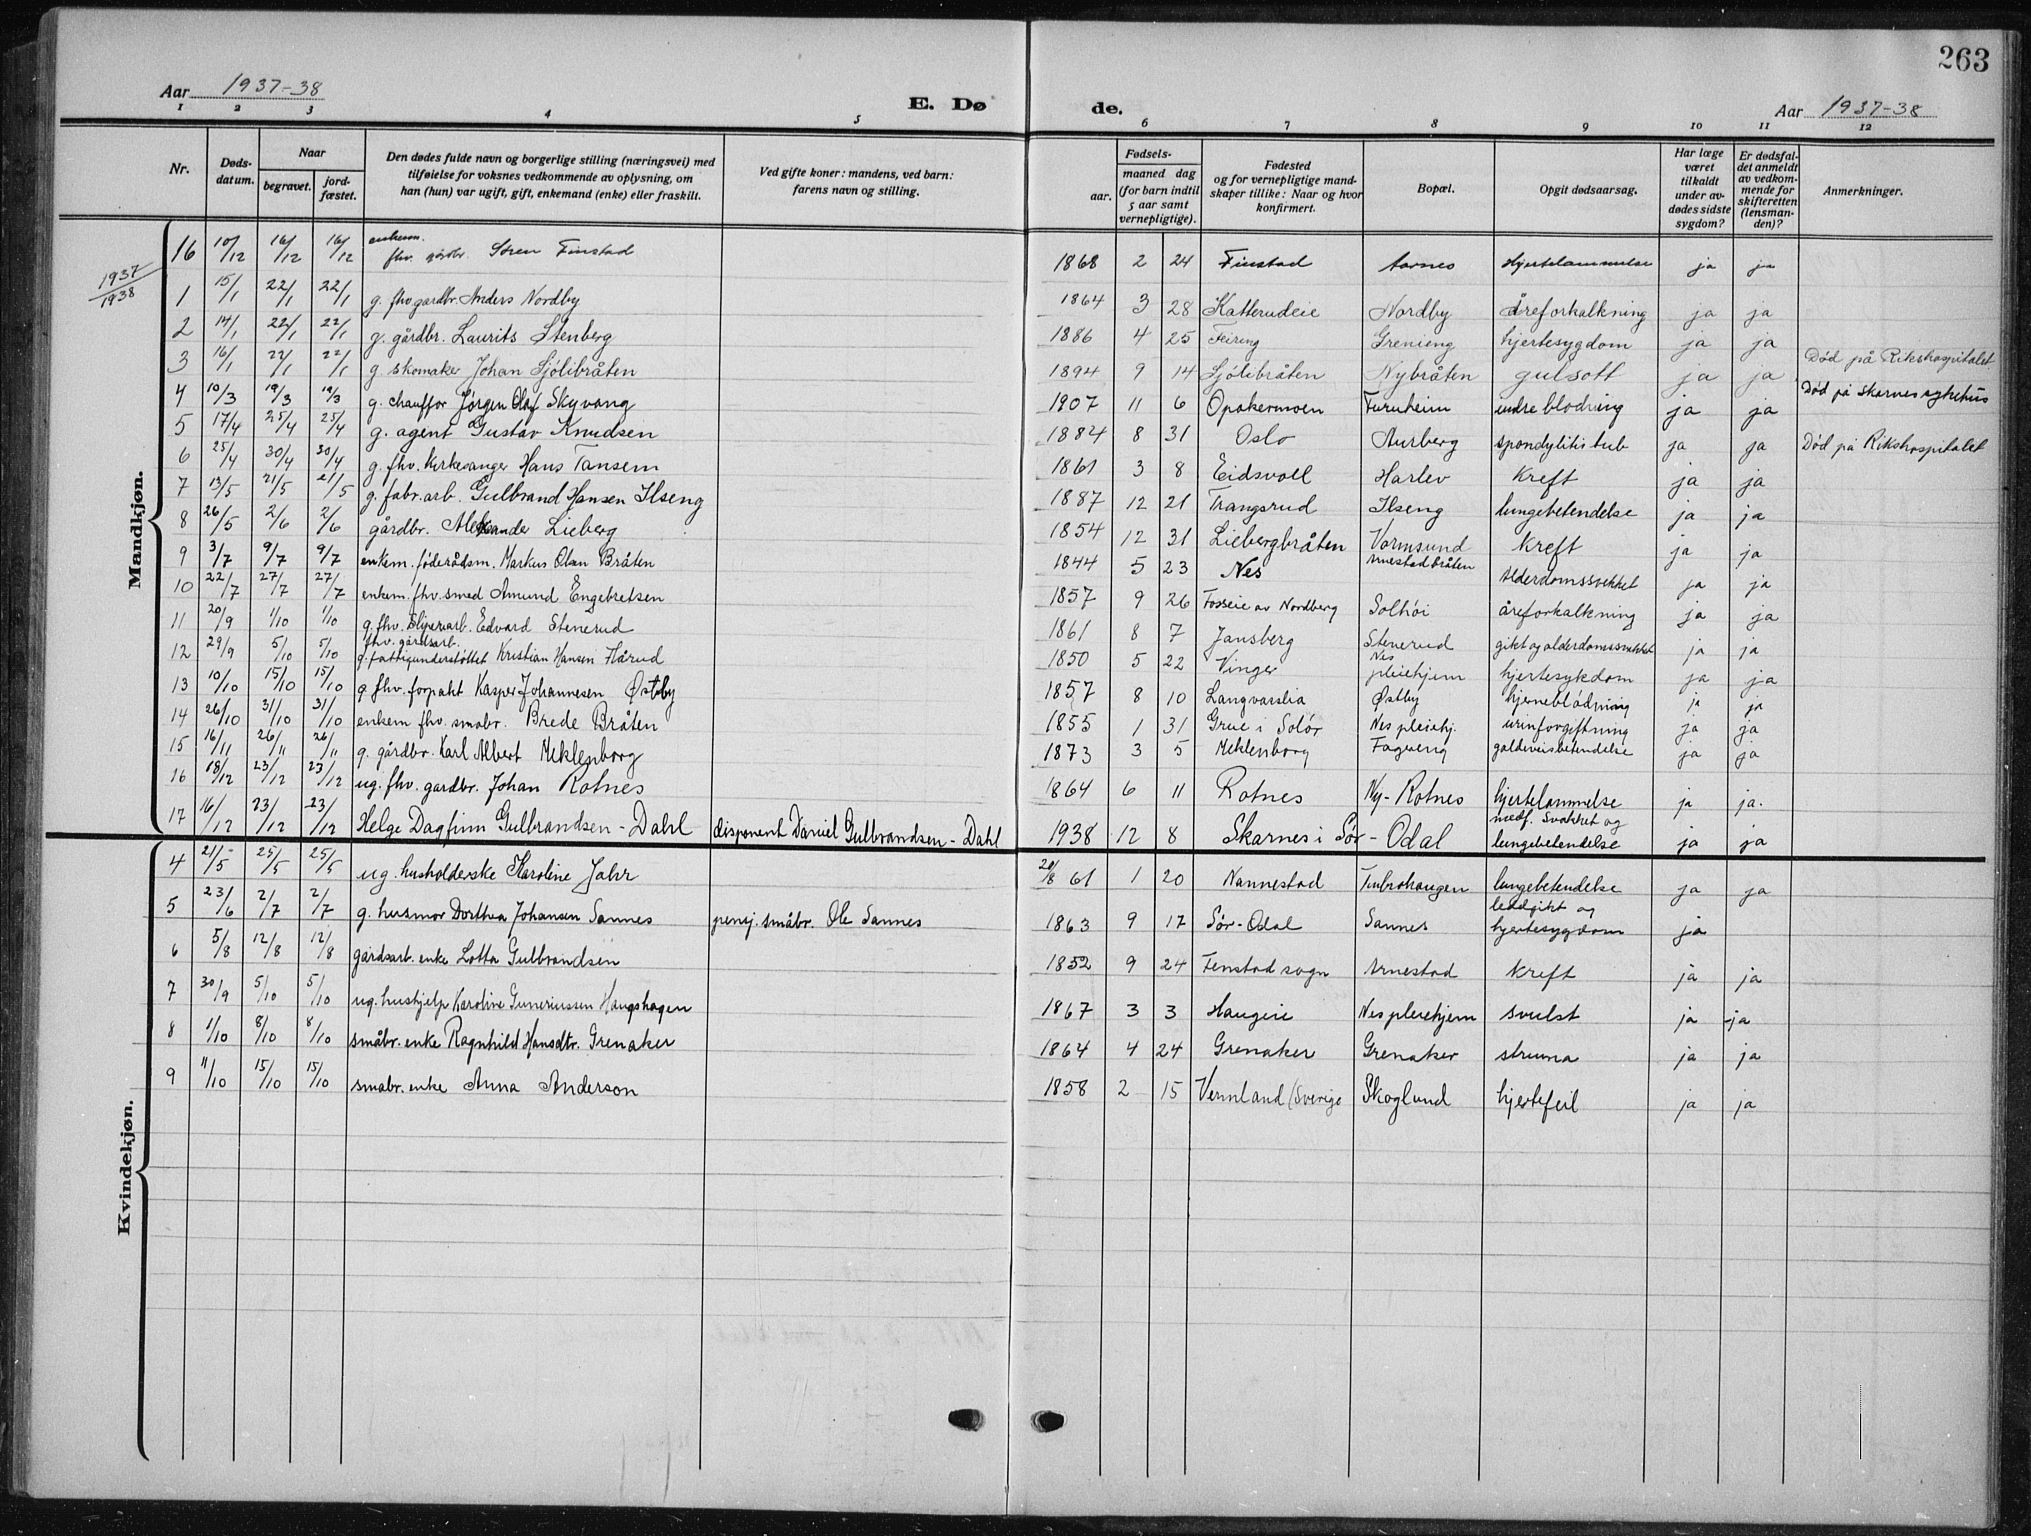 263
Aar 1937-38
E. Dø
de.
Aar 1937-38
1 2 3 4 5 6 7 8 9 10 11 12
Nr.
Døds-
datum.
Naar
begravet.
jord-
fæstet.
Den dødes fulde navn og borgerlige stilling (næringsvei) med
tilføielse for voksnes vedkommende av oplysning, om
han (hun) var ugift, gift, enkemand (enke) eller fraskilt.
Ved gifte koner: mandens, ved barn:
farens navn og stilling.
Fødsels-
aar.
maaned dag
(for barn indtil
5 aar samt
vernepligtige).
Fødested
og for vernepligtige mand-
skaper tillike: Naar og hvor
konfirmert.
Bopæl.
Opgit dødsaarsag.
Har læge
været
tilkaldt
under av-
dødes sidste
sygdom?
Er dødsfal-
det anmeldt
av vedkom-
mende for
skifteretten
(lensman-
den)?
Anmerkninger.
Mandkjøn.
1937
1938
16 10/12 16/12 16/12 enkem. fhv. gårdbr Søren Finstad 1868 2 24 Finstad Aarnes Hjertelammelse ja ja
1 15/1 22/1 22/1 g. fhv. gardbr. Anders Nordby 1864 3 28 Katterudeie Nordby åreforkalkning ja ja
2 14/1 22/1 22/1 g. gårdbr. Laurits Stenberg 1886 4 25 Feiring Grenieng hjertesygdom ja ja
3 16/1 22/1 22/1 g. skomaker Johan Sjølibråten 1894 9 14 Sjølibråten Nybråten gulsott ja ja Død på Rikshospitalet
4 10/3 19/3 19/3 g. chauffør Jørgen Olaf Skyvang 1907 11 6 Opakermoen Furuheim indre blødning ja ja Død på Skarnes sykehus
5 17/4 25/4 25/4 g. agent Gustav Knudsen 1884 8 31 Oslo Aurberg spondylitis tub ja ja Død på Rikshospitalet
6 25/4 30/4 30/4 g. fhv. kirkesanger Hans Tansem 1861 3 8 Eidsvoll Harlev Kreft ja ja
7 13/5 21/5 21/5 g. fabr. arb. Gulbrand Hansen Ilseng 1887 12 21 Trangsrud Ilseng lungebetendelse ja ja
8 26/5 2/6 2/6 gårdbr. Aleksander Lieberg 1854 12 31 Liebergbråten Vormsund Kreft ja ja
9 3/7 9/7 9/7 enkem. føderådsm. Markus Olsen Bråten 1844 5 23 Nes Arnestadbråten Alderdomssvekket ja ja
10 22/7 27/7 27/7 enkem. fhv. smed Amund Engebretsen 1857 9 26 Fosseie av Nordberg Solhøi åreforkalkning ja ja
11 20/9 1/10 1/10 g. fhv. Slyserarb. Edvard Stenerud 1861 8 7 Jansberg Stenerud gikt og alderdomssvekket ja ja
12 29/9 5/10 5/10 fhv. gårdsarb. g. fattigunderstøttet Kristian Hansen Hårud 1850 5 22 Vinger Nes pleiehjem hjertesykdom ja ja
13 10/10 15/10 15/10 g fhv. forpakt Kasper Johannesen Østby 1857 8 10 Langvasslia Østby hjerneblødning ja ja
14 26/10 31/10 31/10 enkem fhv. småbr. Brede Bråten 1855 1 31 Grue i Solør Nes pleiehj. urinforgiftning ja ja
15 16/11 26/11 26/11 g. gårdbr. Karl Albert Meklenborg 1873 3 5 Meklenborg Fagereng galdeveisbetendelse ja ja
16 18/12 23/12 23/12 ug. fhv. gardbr. Johan Rotnes 1864 6 11 Rotnes Ny-Rotnes hjertelammelse ja ja.
17 16/12 23/12 23/12 Helge Dagfinn Gulbrandsen-Dahl disponent Daniel Gulbrandsen-Dahl 1938 12 8 Skarnes i Sør-Odal medf. svakhet og lungebetendelse ja ja
Kvindekjøn.
4 21/5 25/5 25/5 ug. husholderske Karoline Jahr 20/8 61 1 20 Nannestad Timbrohaugen lungebetendelse ja ja
5 23/6 2/7 2/7 g. husmor Dorthea Johansen Sannes pensj. småbr. Ole Sannes 1863 9 17 Sør-Odal Sannes leddgikt og hjertesygdom ja
6 5/8 12/8 12/8 gårdsarb. enke Lotta Gulbrandsen 1852 9 24 Fenstad sogn Arnestad Kreft ja ja
7 30/9 5/10 5/10 ug. hushjelp Karoline Guneriussen Haugshagen 1867 3 3 Haugeie Nes pleiehjem svulst ja ja
8 1/10 8/10 8/10 småbr. enke Ragnhild Hansdtr. Grenaker 1864 4 24 Grenaker Grenaker struma ja ja
9 11/10 15/10 15/10 småbr. enke Anna Anderson 1858 2 15 Vermland (Sverige Skoglund hjertefeil ja ja